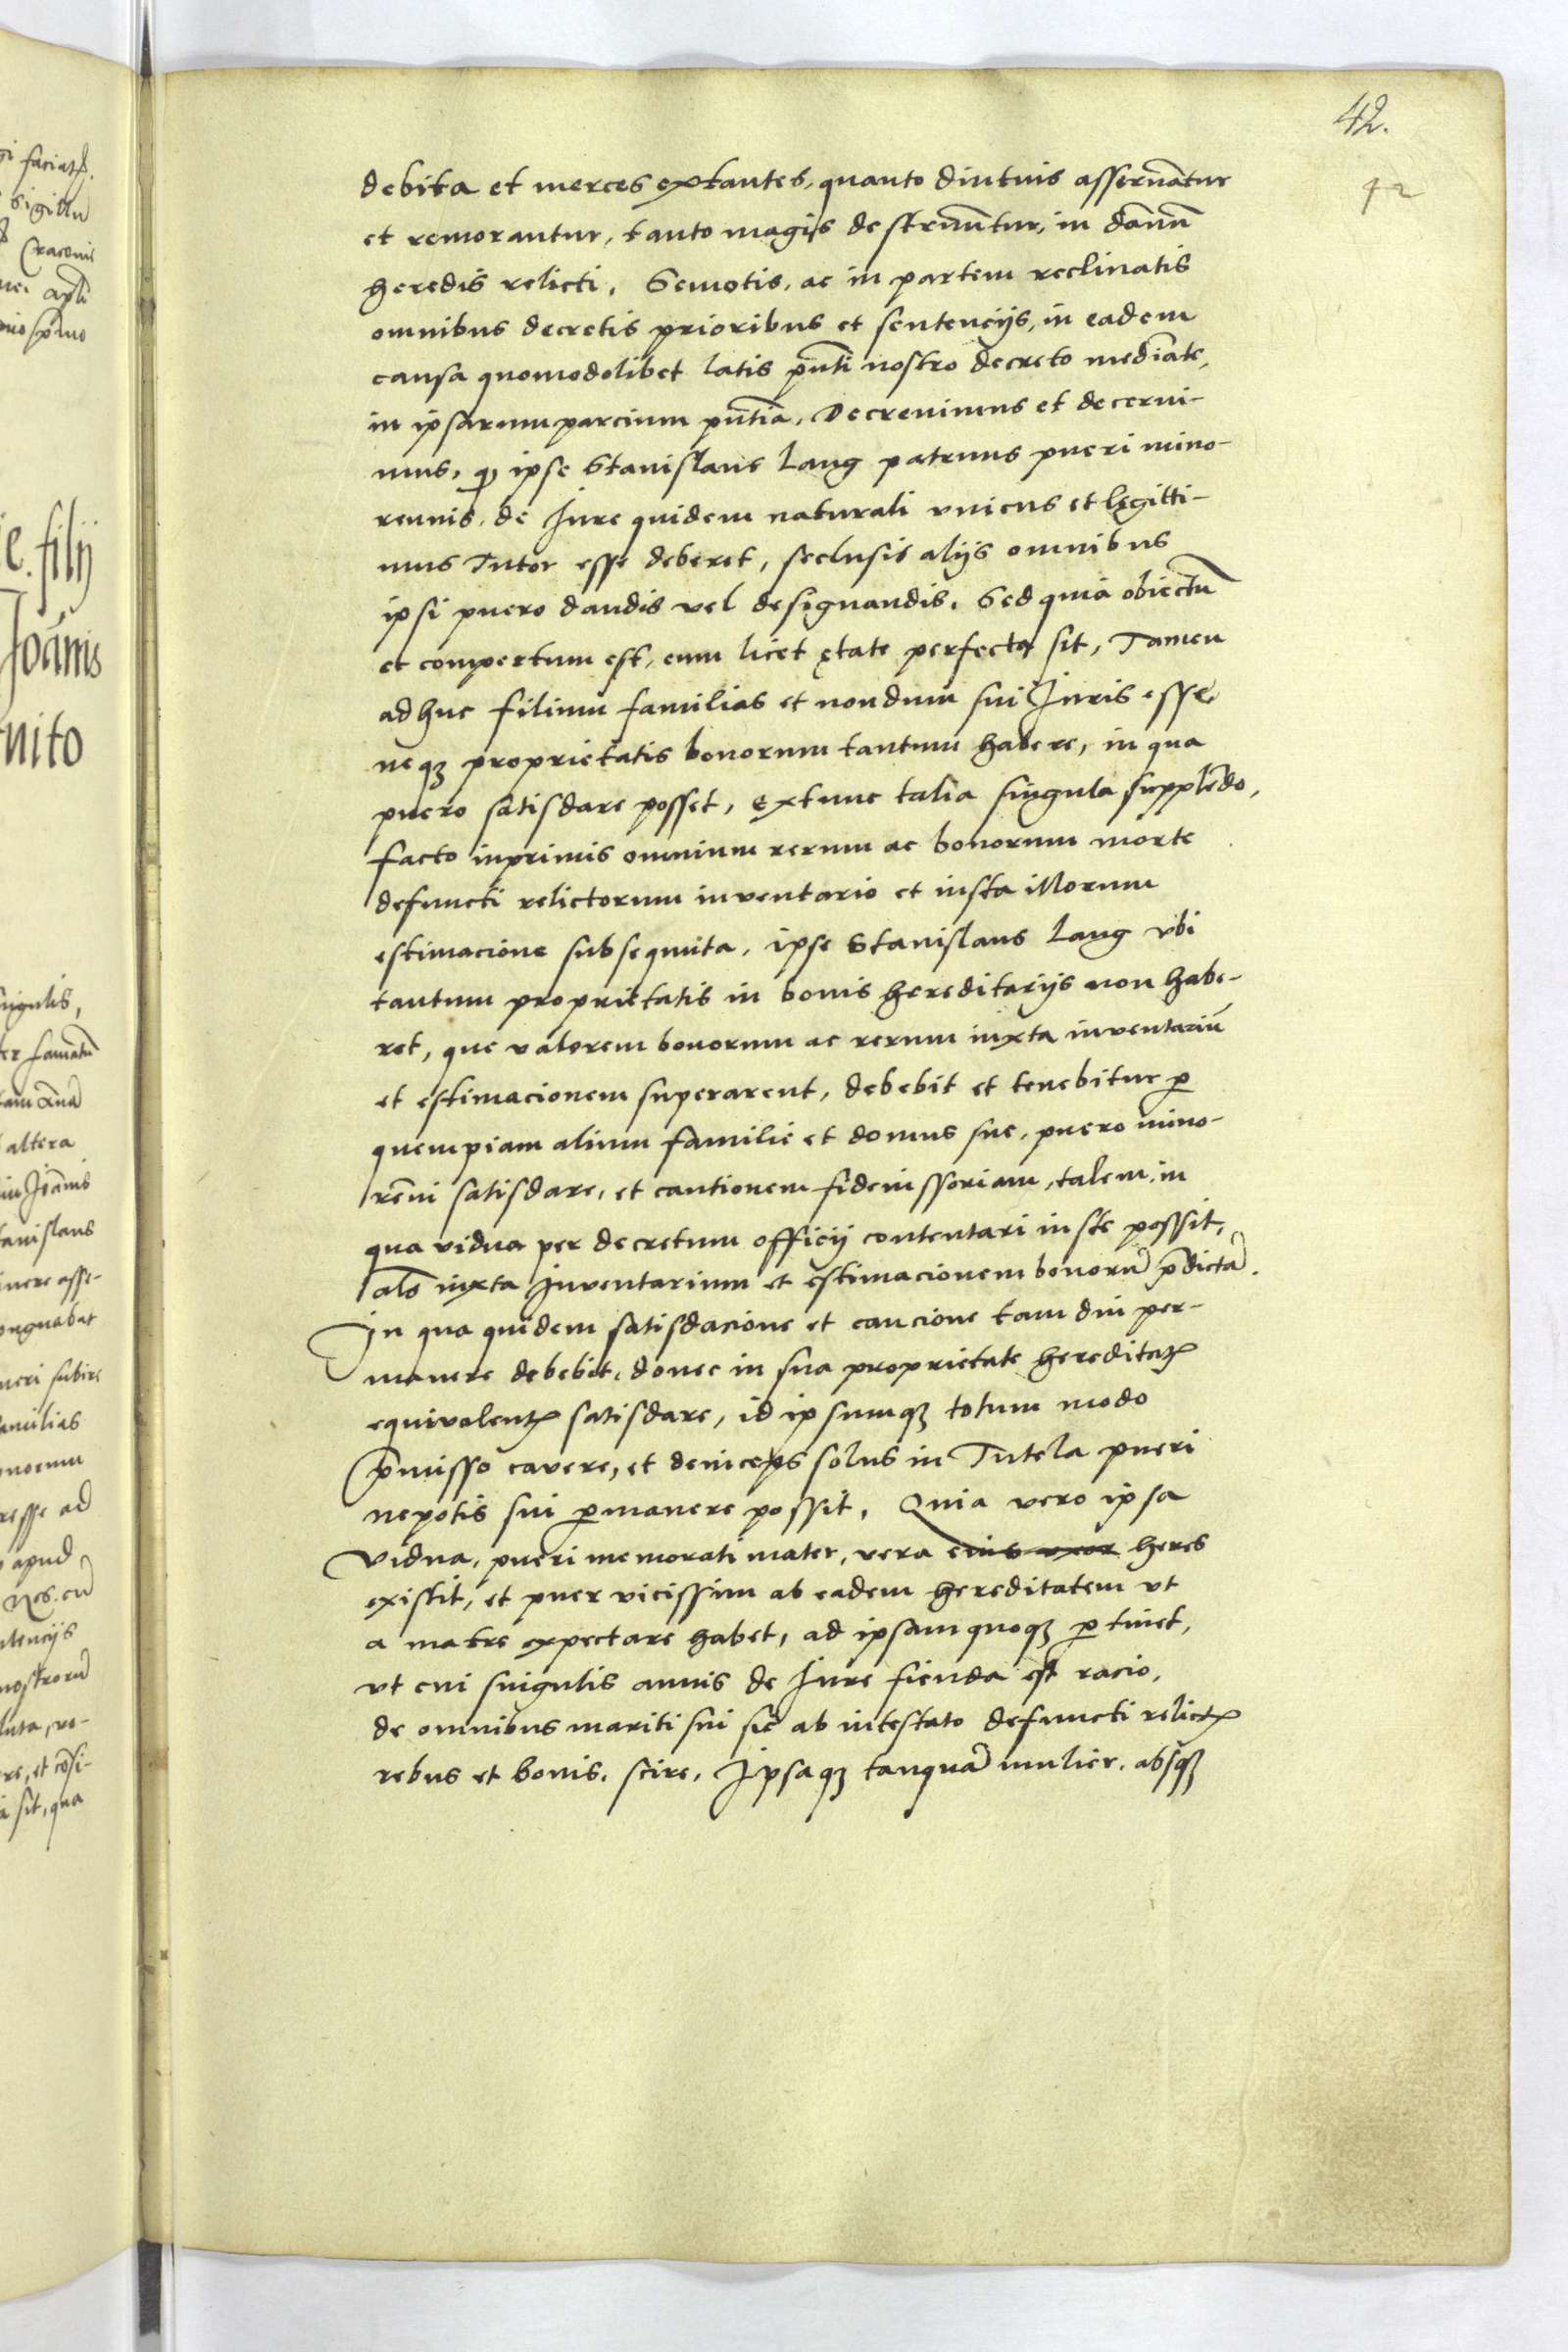 42.
42
debita et merces extantes, quanto diutius asseruātur
et remorantur, tanto magis destruūtur, in dānū
heredis relicti. Semotis, ac in partem reclinatis
omnibus decretis prioribus et sentencijs, in eadem
causa quomodolibet latis pn̄ti nostro decreto mediāte,
in ipsarum parcium pn̄tia. Decreuimus et decerni-
mus, ꝙ ipse Stanislaus Lang patruus pueri mino-
rennis, de Iure quidem naturali vnicus et legitti-
mus Tutor esse deberet, seclusis alijs omnibus
ipsi puero dandis vel designandis. Sed quia obiectū
et compertum est, eum licet ętate perfecta sit, Tamen
adhuc filium familias et nondum sui Iuris esse
neqꝫ proprietatis bonorum tantum habere, in qua
puero satisdare posset, extunc talia singula supplēdo,
facto inprimis omnium rerum ac bonorum morte
defuncti relictorum inventario et iusta illorum
estimacione subsequuta, ipse Stanislaus Lang vbi
tantum proprietatis in bonis hereditarijs non habe-
ret, que valorem bonorum ac rerum iuxta inventariū
et estimacionem superarent, debebit et tenebitur ꝑ
quempiam alium familie et domus sue, puero mino-
rēni satisdare, et cautionem fideiussoriam, talem, in
qua vidua per decretum officij contentari iuste possit,
als̄ iuxta Inventarium et estimacionem bonorū p̄dictā.
In qua quidem satisdacione et caucione tam diu per-
manere debebit, donec in sua proprietate hereditaꝝ
equivalenꝝ satisdare, id ipsumqꝫ totum modo
p̄misso cavere, et deniceps solus in Tutela pueri
nepotis sui ꝑmanere possit. Quia vero ipsa
Vidua, pueri memorati mater, vera eius uxor heres
existit, et puer vicissim ab eadem hereditatem vt
a matre expectare habet, ad ipsam quoqꝫ ꝑtinet,
vt cui singulis annis de Iure fienda est racio,
de omnibus mariti sui sic ab intestato defuncti relictꝝ
rebus et bonis, scire, Ipsaqꝫ tanquā mulier, absqꝫ